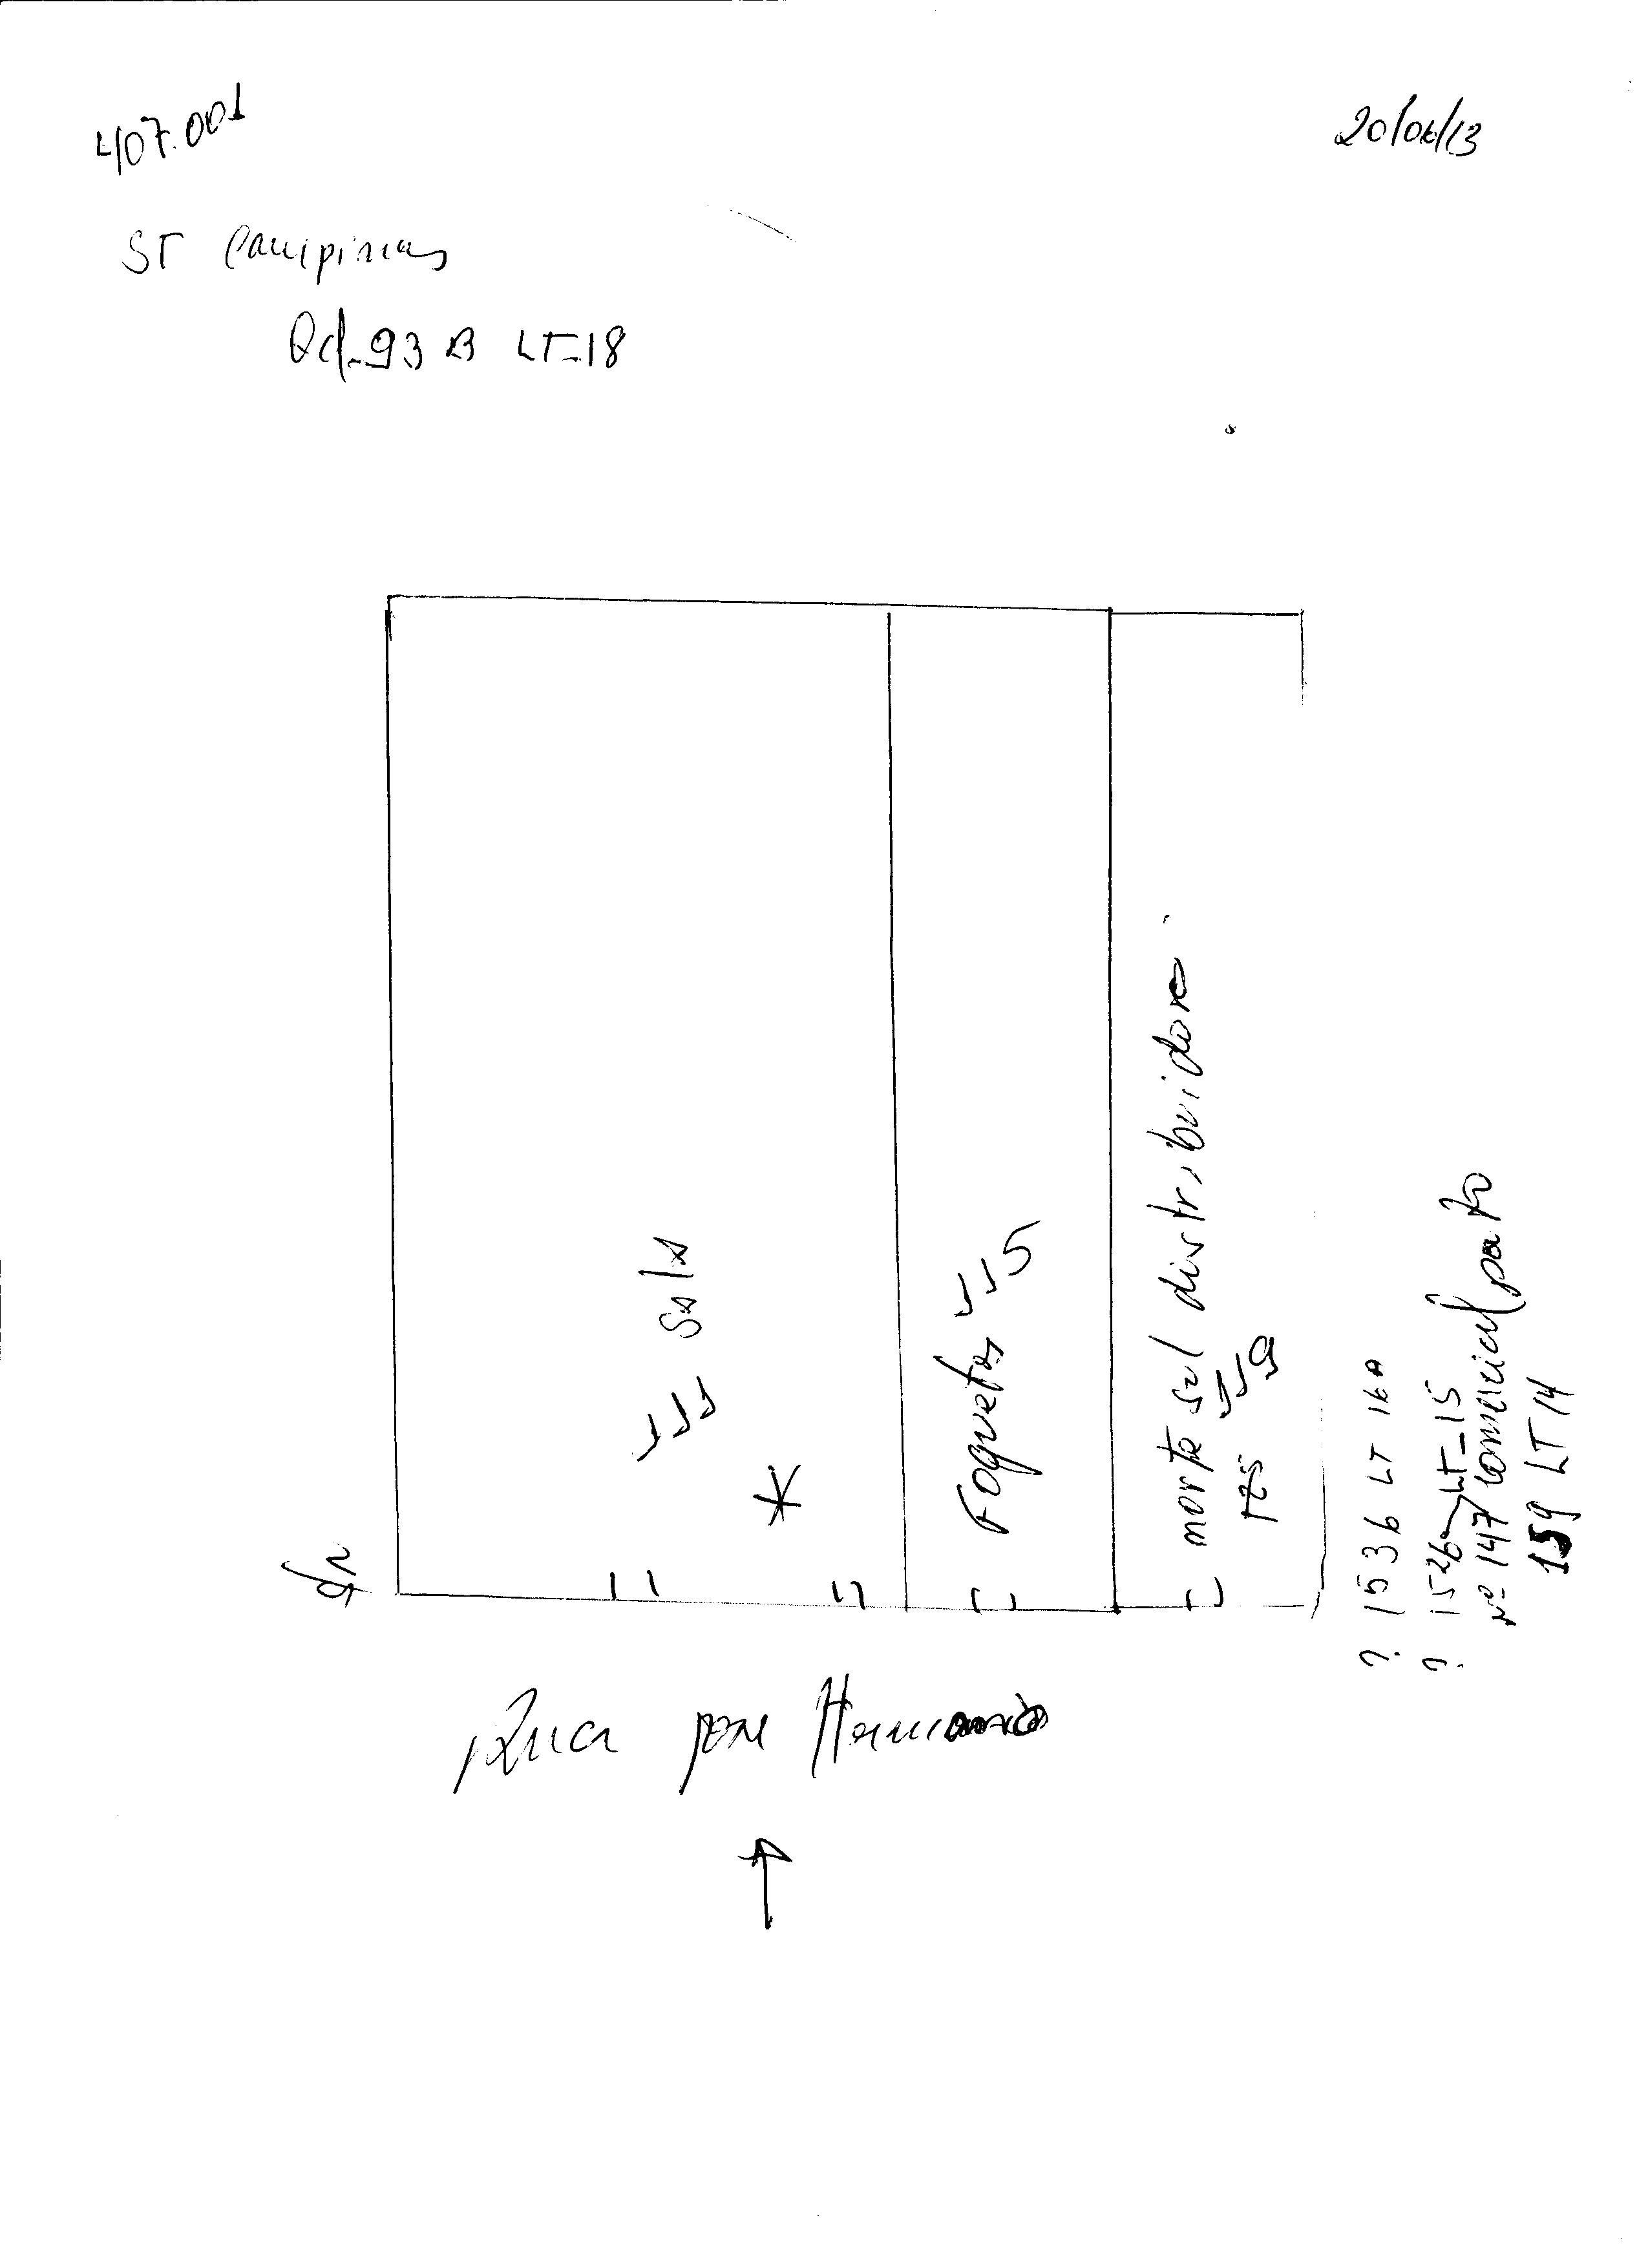 407.001
20/06/13
ST Campinas
Qd-93 B LT-18
111 Sala
Foquetas 115
norte sul distribuidora
119
175
? 1536 LT 16A
? 1526 LT-15
nº 147 Comercial pato
159 LT 14
Rua